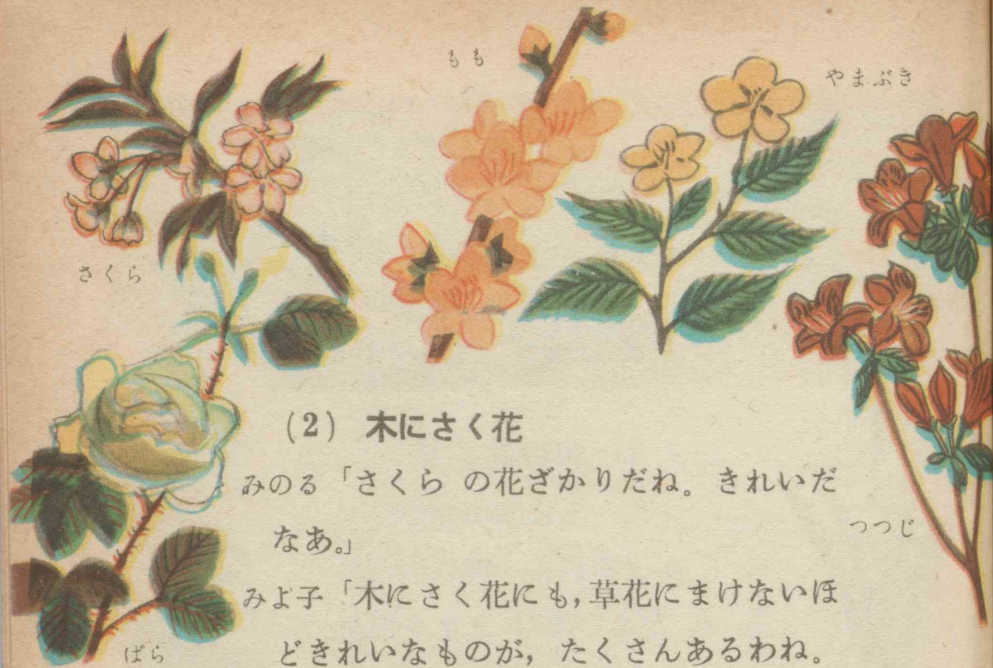 もも
やまぶき
さくら
つつじ
ばら
(2) 木にさく花
みのる「さくら の花ざかりだね。きれいだ
なあ。」
みよ子「木にさく花にも,草花にまけないほ
どきれいなものが,たくさんあるわね。